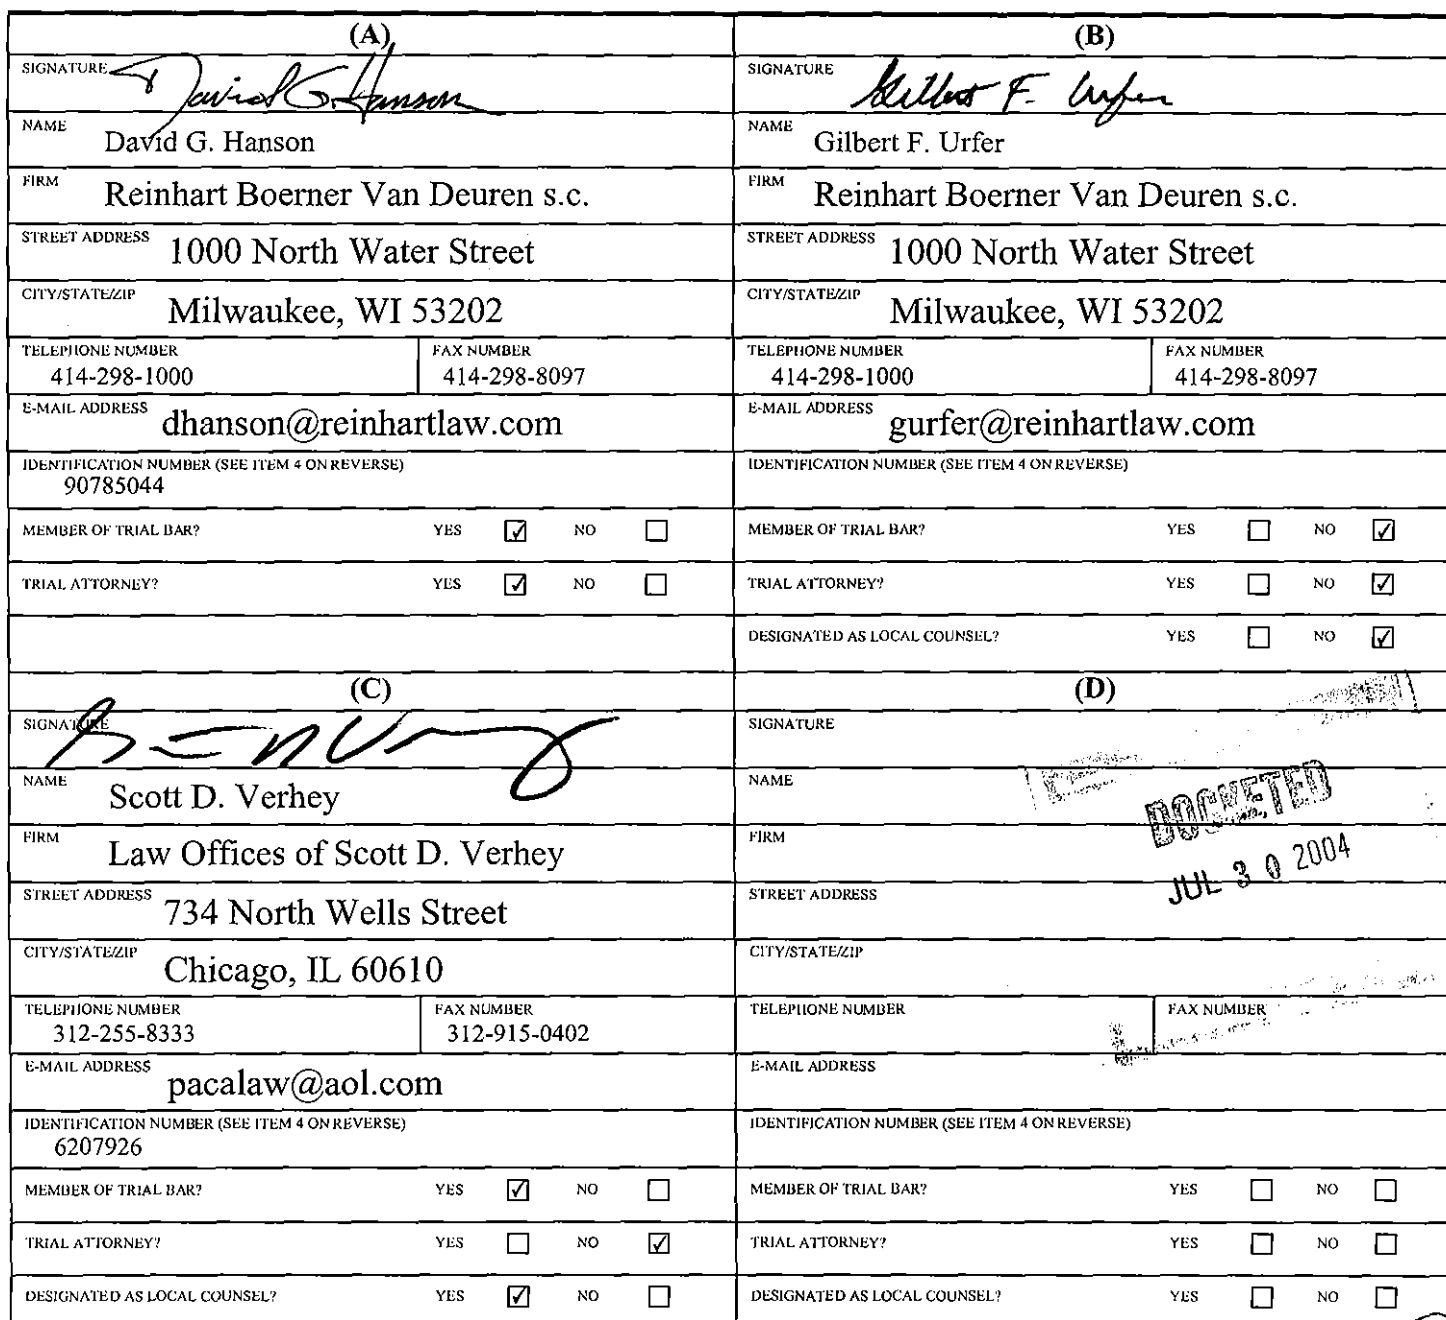 (A)
SIGNATURE David G. Hanson
NAME David G. Hanson
FIRM Reinhart Boerner Van Deuren s.c.
STREET ADDRESS 1000 North Water Street
CITY/STATE/ZIP Milwaukee, WI 53202
TELEPHONE NUMBER FAX NUMBER
414-298-1000 414-298-8097
E-MAIL ADDRESS dhanson@reinhartlaw.com
IDENTIFICATION NUMBER (SEE ITEM 4 ON REVERSE)
90785044
MEMBER OF TRIAL BAR? YES ☑ NO ☐
TRIAL ATTORNEY? YES ☑ NO ☐
(B)
SIGNATURE Gilbert F. Urfer
NAME Gilbert F. Urfer
FIRM Reinhart Boerner Van Deuren s.c.
STREET ADDRESS 1000 North Water Street
CITY/STATE/ZIP Milwaukee, WI 53202
TELEPHONE NUMBER FAX NUMBER
414-298-1000 414-298-8097
E-MAIL ADDRESS gurfer@reinhartlaw.com
IDENTIFICATION NUMBER (SEE ITEM 4 ON REVERSE)
MEMBER OF TRIAL BAR? YES ☐ NO ☑
TRIAL ATTORNEY? YES ☐ NO ☑
DESIGNATED AS LOCAL COUNSEL? YES ☐ NO ☑
(C)
SIGNATURE
NAME Scott D. Verhey
FIRM Law Offices of Scott D. Verhey
STREET ADDRESS 734 North Wells Street
CITY/STATE/ZIP Chicago, IL 60610
TELEPHONE NUMBER FAX NUMBER
312-255-8333 312-915-0402
E-MAIL ADDRESS pacalaw@aol.com
IDENTIFICATION NUMBER (SEE ITEM 4 ON REVERSE)
6207926
MEMBER OF TRIAL BAR? YES ☑ NO ☐
TRIAL ATTORNEY? YES ☐ NO ☑
DESIGNATED AS LOCAL COUNSEL? YES ☑ NO ☐
(D)
SIGNATURE
NAME
DOCKETED
FIRM
JUL 30 2004
STREET ADDRESS
CITY/STATE/ZIP
TELEPHONE NUMBER FAX NUMBER
E-MAIL ADDRESS
IDENTIFICATION NUMBER (SEE ITEM 4 ON REVERSE)
MEMBER OF TRIAL BAR? YES ☐ NO ☐
TRIAL ATTORNEY? YES ☐ NO ☐
DESIGNATED AS LOCAL COUNSEL? YES ☐ NO ☐